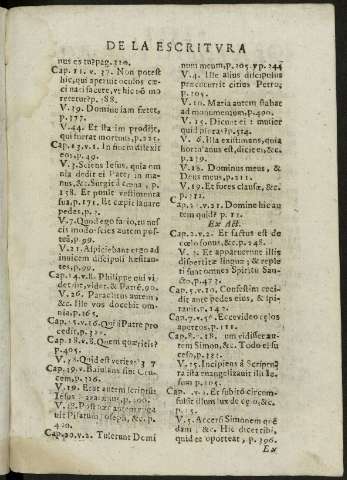 DE LA ESCRITVRA
nus es tu? pag. 210.
Cap. 11. v. 37. Non potest
hic, qui aperuit oculos cæ-
ci nati facere, vt hic nō mo
reretur? p. 188.
V. 39. Domine iam fœtet,
p. 177.
V. 44. Et sta im prodijt,
qui fuerat mortuus, p. 225.
Cap. 13. v. 1. In finem dilexit
eos, p. 49.
V. 3. Sciens Iesus, quia om
nia dedit ei Pater in ma-
nus, &c. Surgit à cœna, p.
158. Et ponit vestimenta
sua, p. 151. Et cœpit lauare
pedes, p. 7.
V. 7. Quod ego facio, tu nes
cis modo: scies autem post
teà, p. 99.
V. 21. Aspiciebant ergo ad
inuicem discipuli hæsitan-
tes, p. 99.
Cap. 14. v. 8. Philippe qui vi
det me, videt, & Patrē, 90.
V. 26. Paraclitus autem,
&c. Ille vos docebit omnia,
p.
Cap. 15. v. 16. Qui à Patre pro
cedit, p.
Cap. 18. v. 8. Quem quæritis?
p. 405.
V. 38. Quid est veritas?
Cap. 19. v. Baiulans sibi Cru
cem, p. 326.
V. 19. Erat autem scriptum
Iesus Nazarenus, p. 300.
V. 38. Post hæc autem roga
uit Pilatum Ioseph, &c. p.
420.
Cap. 20. v. 2. Tulerunt Domi
num meum, p. 205. y p. 244
V. 4. Ille alius discipulus
præcucurrit citius Petro,
p. 205.
V. 10. Maria autem stabat
ad monumentum, p. 400.
V. 15. Dicunt ei: mulier
quid ploras? p. 514.
V. 6. Illa existimans, quia
hortulanus est, dicit ei, &c.
p. 239.
V. 28. Dominus meus, &
Deus meus, p. 211.
V. 19. Et fores clausæ, &c.
p. 312.
Cap. 21. v. 21. Domine hic au
tem quid? p. 11.
Ex Act.
Cap. 2. v. 2. Et factus est de
cœlo sonus, &c. p. 248.
V. 3. Et apparuerunt illis
dispertitæ linguæ; & reple
ti sunt omnes Spiritu San-
cto, p. 473.
Cap. 5. v. 10. Confestim ceci-
dit ante pedes eius, & expi-
rauit, p. 142.
Cap. 7. v. 56. Ecce video cœlos
apertos, p. 111.
Cap. 8. v. 18. um vidisset au-
tem Simon, &c. Todo el su
ceso, p. 121.
V. 35. Incipiens à Scriptu-
ra ista euangelizauit illi Ie-
sum p. 105.
Cap. 9. v. 3. Et subitò circum-
fulsit illum lux de cœlo, &c.
p. 15.
V. 5. Accersi Simonem quē
dam, &c. Hic dicet tibi,
quid te oporteat, p. 396.
Ex